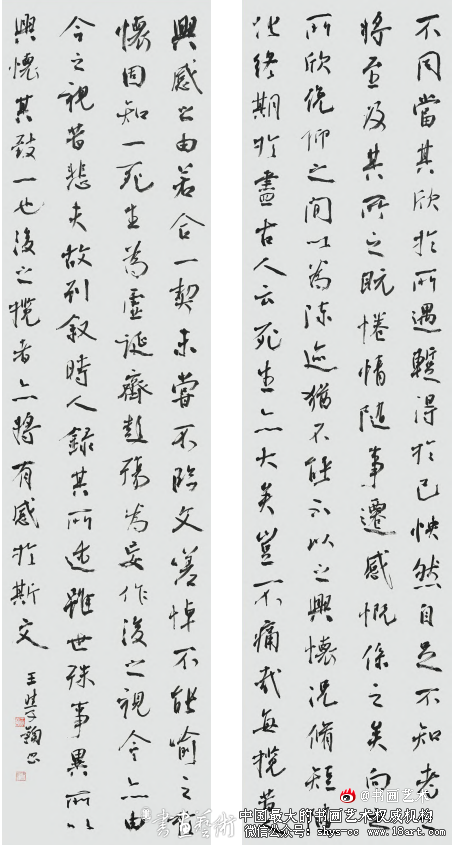 不同當其欣於所遇暫得於己怏然自足不知老之
將至及其所之既惓情隨事遷感慨係之矣向之
所欣俛仰之間以為陳迹猶不能不以之興懷況脩短隨
化終期於盡古人云死生亦大矣豈不痛哉每攬昔
興感之由若合一契未嘗不臨文嗟悼不能喻之於
懷固知一死生為虛誕齊彭殤為妄作後之視今亦由
今之視昔悲夫故列敘時人錄其所述雖世殊事異所以
興懷其致一也後之攬者亦將有感於斯文
王
@书画艺术
書畫藝術
中国最大的书画艺术权威机构
微信公众号：shys-cc www.18art.com